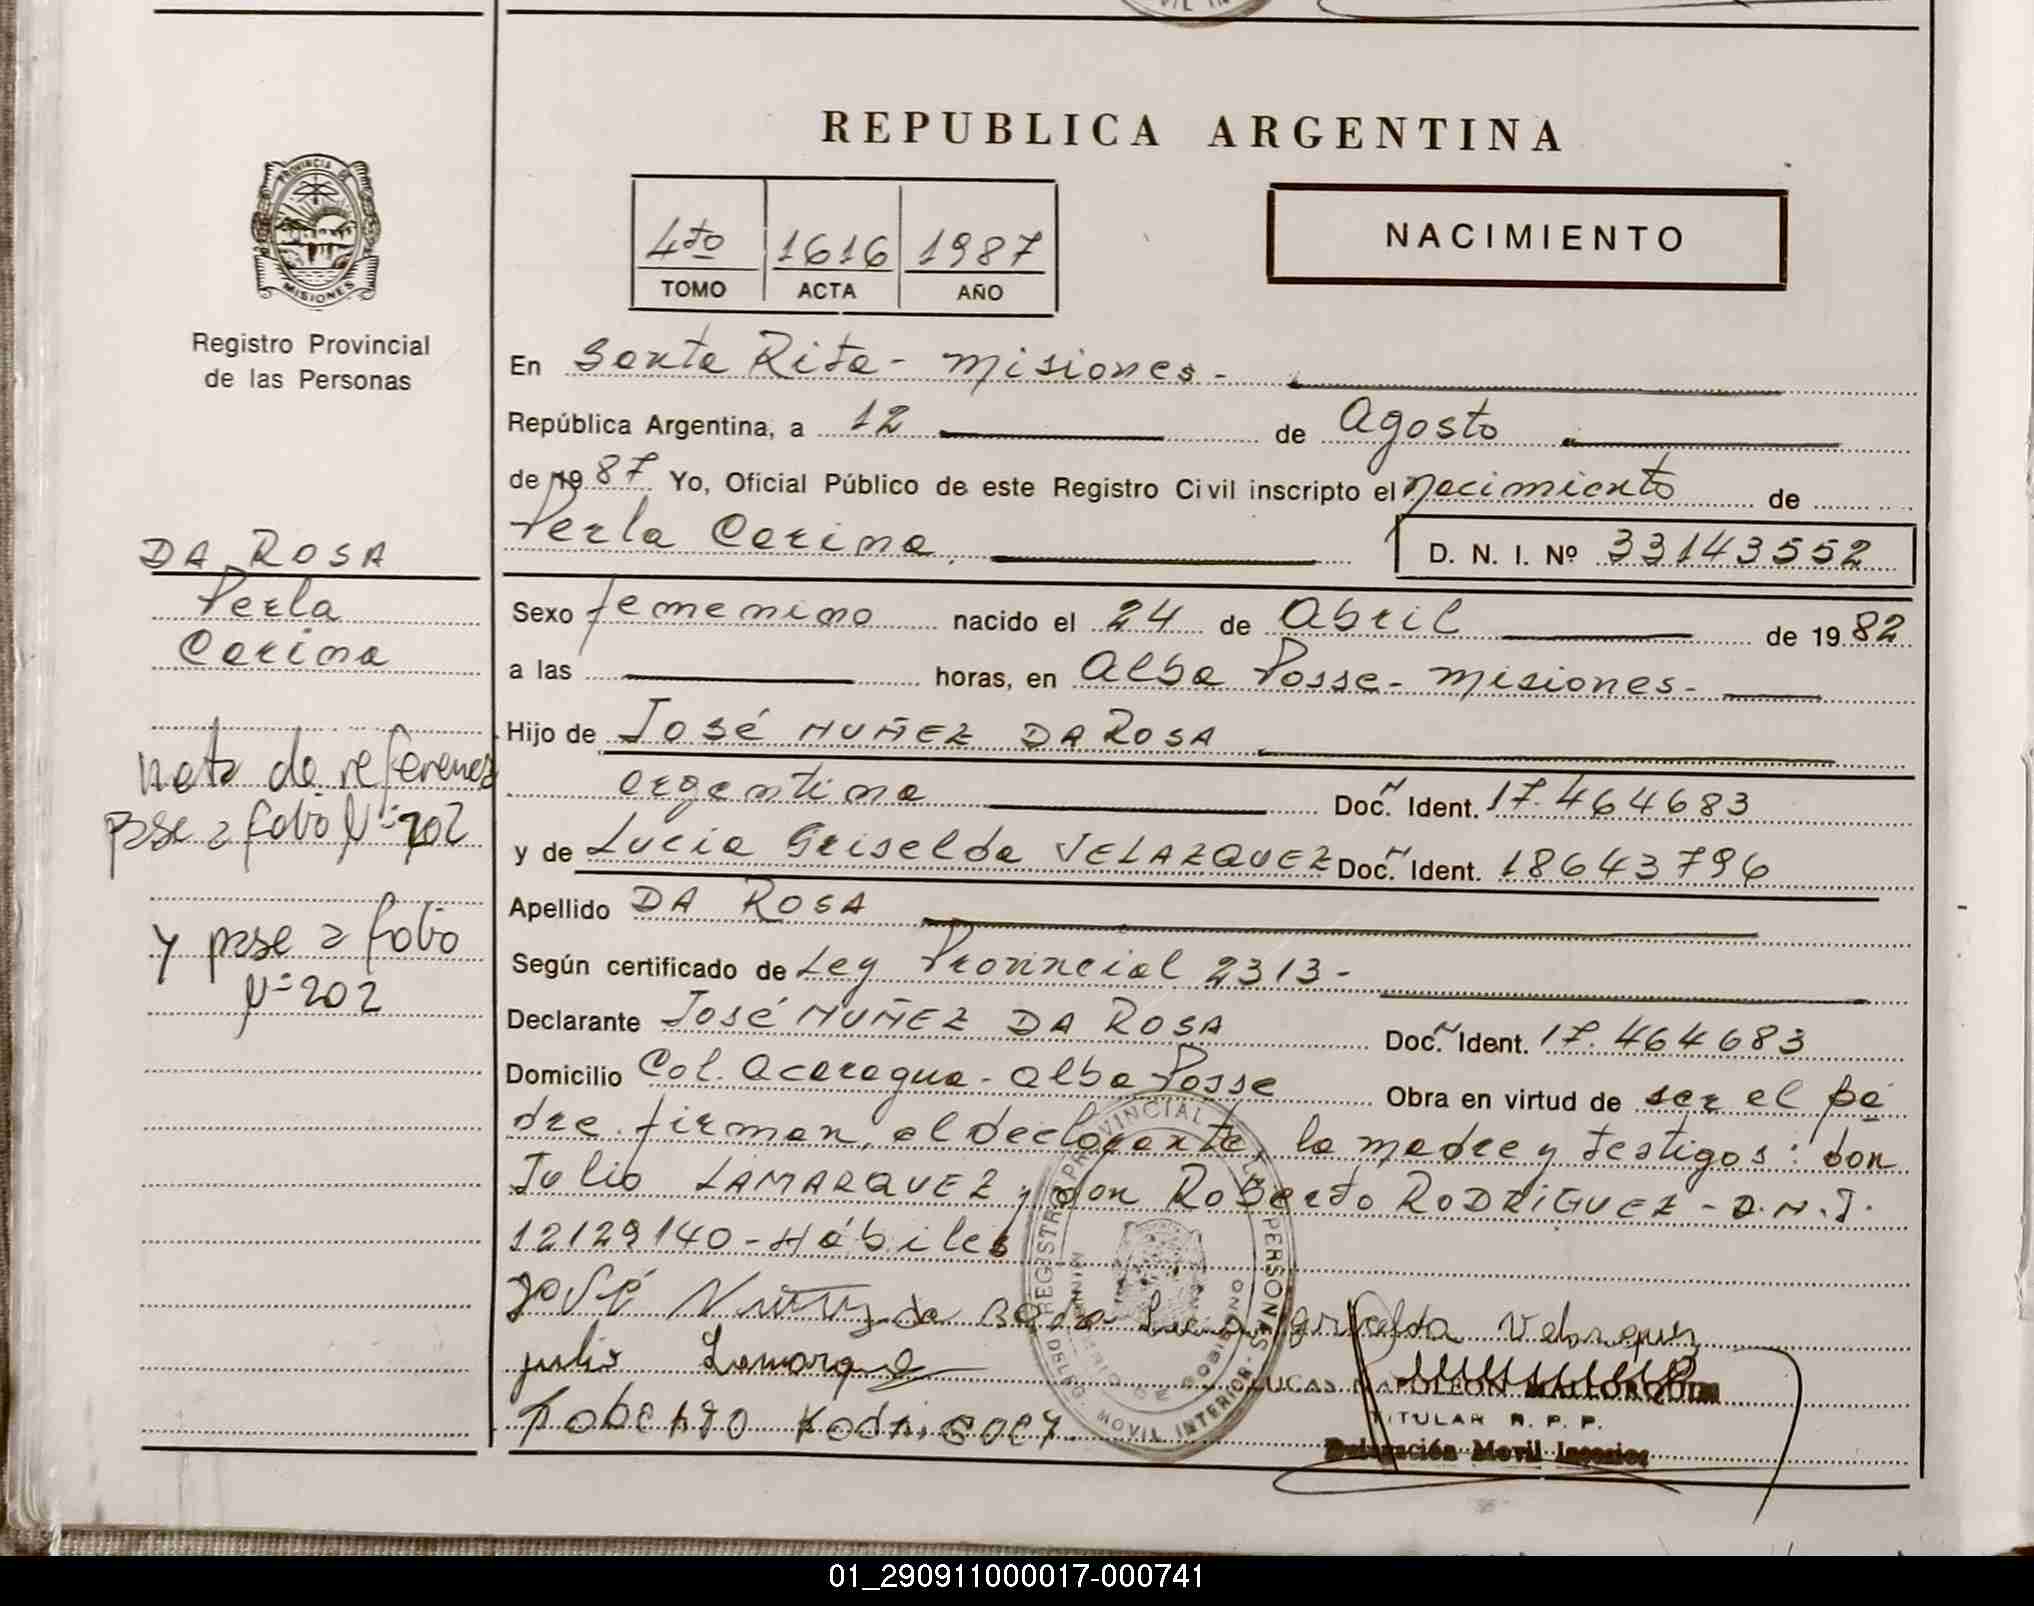 REPUBLICA ARGENTINA
PROVINCIA DE
MISIONES
Registro Provincial
de las Personas
4to 1616 1987
TOMO ACTA AÑO
NACIMIENTO
En Santa Rita - Misiones -
República Argentina, a 12 de Agosto
de 19 87 Yo, Oficial Público de este Registro Civil inscripto el nacimiento de
Perla Carina D. N. I. Nº 33143552
DA ROSA
Perla
Carina
nota de referencia
pase a folio Nº 202
y pase a folio
Nº 202
Sexo femenino nacido el 24 de Abril de 19 82
a las horas, en Alba Posse - Misiones -
Hijo de José NUÑEZ DA ROSA
argentina Doc. Ident. 17.464683
y de Lucia Griselda VELAZQUEZ Doc. Ident. 18643796
Apellido DA ROSA
Según certificado de Ley Provincial 2313 -
Declarante José NUÑEZ DA ROSA Doc. Ident. 17.464683
Domicilio Col. Acaragua - Alba Posse Obra en virtud de ser el pa
dre. firman, el declarante, la madre y testigos: don
Julio LAMARQUEZ y don Roberto RODRIGUEZ - D.N.I.
12129140 - Hábiles
José Nuñez da Rosa Lucia Griselda Velazquez
julio Lamarque
Roberto Rodriguez
REGISTRO PROVINCIAL DE LAS PERSONAS
DELEG. MOVIL INTERIOR
LUCAS NAPOLEON MALLORQUIN
TITULAR R. P. P.
Delegación Movil Interior
01_290911000017-000741